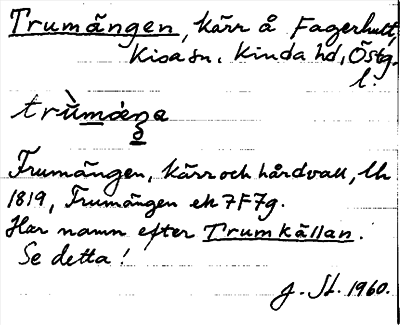 Trumängen, kärr å Fagerhult,
Kisa sn, Kinda hd, Östg.
l.
Trumängen, kärr och hårdvall, lh
1819, Trumängen ek 7F7g.
Har namn efter Trumkällan.
Se detta!
J. St. 1960.